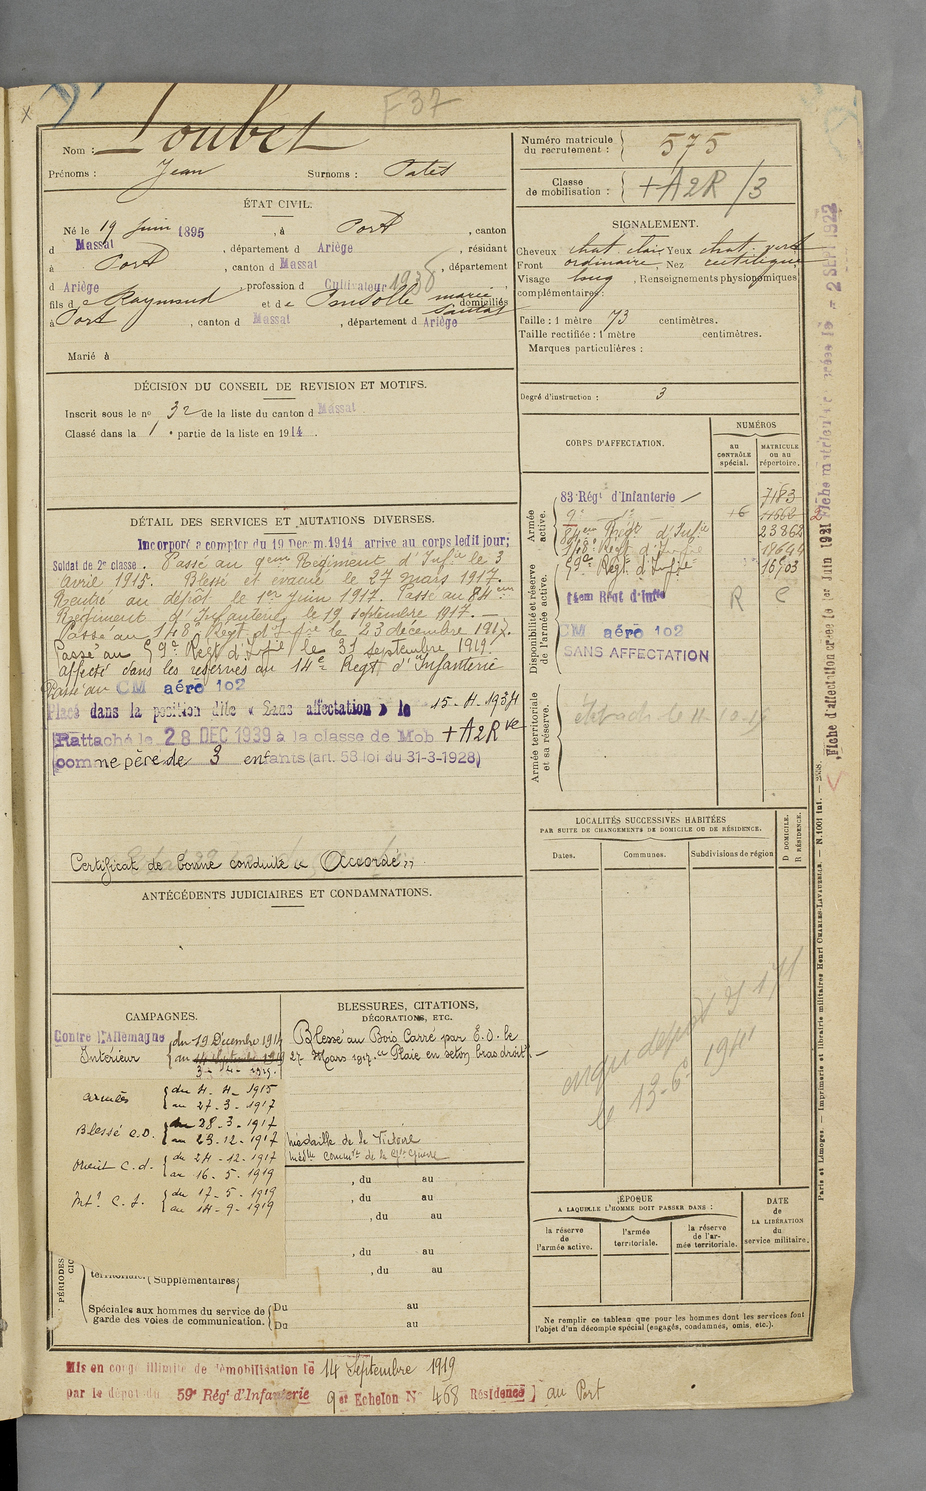 F37
Nom : Loubet
Prénoms : Jean Surnoms : Patès
ÉTAT CIVIL.
Né le 19 Juin 1895, à Port, canton
d Massat, département d Ariège, résidant
à Port, canton d Massat, département
d Ariège, profession d Cultivateur 1936
fils de Raymond et de Ponsolle Marie domiciliés
à Port, canton d Massat, département d Ariège
Marié à
DÉCISION DU CONSEIL DE REVISION ET MOTIFS.
Inscrit sous le no 32 de la liste du canton d Massat
Classé dans la 1 e partie de la liste en 1914.
DÉTAIL DES SERVICES ET MUTATIONS DIVERSES.
Incorporé à compter du 19 Décem. 1914 arrivé au corps ledit jour;
Soldat de 2e classe. Passé au 9em Régiment d'Infie le 3
Avril 1915. Blessé et évacué le 27 mars 1917.
Rentré au dépôt le 1er juin 1917. Passé au 84em
Régiment d'Infanterie, le 19 septembre 1917.
Passé au 148e Regt d'Infie le 23 décembre 1917.
Passé au 59e Regt d'Infie le 31 septembre 1919.
Affecté dans les réserves au 14e Regt d'Infanterie
Passé au CM aéro 102
Placé dans la position dite « Sans affectation » le 15-4-1934
Rattaché le 28 DEC 1939 à la classe de Mob. +A2R
comme père de 3 enfants (art. 58 loi du 31-3-1928)
Certificat de bonne conduite "Accordé"
ANTÉCÉDENTS JUDICIAIRES ET CONDAMNATIONS.
CAMPAGNES.
Contre l'Allemagne du 19 Décembre 1914
Intérieur au 14 Septembre 1919
3-4-1915
Armées du 4-4-1915
au 27-3-1917
Blessé C.D. du 28-3-1917
au 23-12-1917
Orient C.d. du 24-12-1917
au 16-5-1919
Intr C.S. du 17-5-1919
au 14-9-1919
BLESSURES, CITATIONS,
DÉCORATIONS, ETC.
Blessé au Bois Carré par E.O. le
27 Mars 1917. Plaie en séton bras droit
Médaille de la Victoire
Médlle Commve de la Gde Guerre
, du au
, du au
, du au
, du au
, du au
PÉRIODES
(Supplémentaires)
Spéciales aux hommes du service de Du au
garde des voies de communication. Du au
Mis en congé illimité de démobilisation le 14 Septembre 1919
par le dépôt du 59e Régt d'Infanterie 9er Echelon No 468 Résidence au Port
Numéro matricule
du recrutement : 575
Classe
de mobilisation : +A2R/3
SIGNALEMENT.
Cheveux chat. clair, Yeux chat. vert
Front ordinaire, Nez rectiligne
Visage long, Renseignements physionomiques
complémentaires :
Taille : 1 mètre 73 centimètres.
Taille rectifiée : 1 mètre centimètres.
Marques particulières :
Degré d'instruction : 3
CORPS D'AFFECTATION.
NUMÉROS
au
CONTRÔLE
spécial.
MATRICULE
ou au
répertoire.
Armée
active.
83e Régt d'Infanterie 7183
9e 
84em Régt d'Infie 23862
148e Regt d'Infie
59e Regt d'Infie 16703
Disponibilité et réserve
de l'armée active.
14em Régt d'Infie R C
CM aéro 102
SANS AFFECTATION
Armée territoriale
et sa réserve.
LOCALITÉS SUCCESSIVES HABITÉES
PAR SUITE DE CHANGEMENTS DE DOMICILE OU DE RÉSIDENCE.
Dates.
Communes.
Subdivisions de région
D DOMICILE.
R RÉSIDENCE.
le 13-6-1941
ÉPOQUE
A LAQUELLE L'HOMME DOIT PASSER DANS :
la réserve
de
l'armée active.
l'armée
territoriale.
la réserve
de l'ar-
mée territoriale.
DATE
de
LA LIBÉRATION
du
service militaire.
Ne remplir ce tableau que pour les hommes dont les services font
l'objet d'un décompte spécial (engagés, condamnés, omis, etc.).
Fiche matriculaire créée le 2 SEPT 1922
Fiche d'affectation créée le 1er Juin 1921
Paris et Limoges. — Imprimerie et librairie militaires Henri CHARLES-LAVAUZELLE. — N. 1001 int.